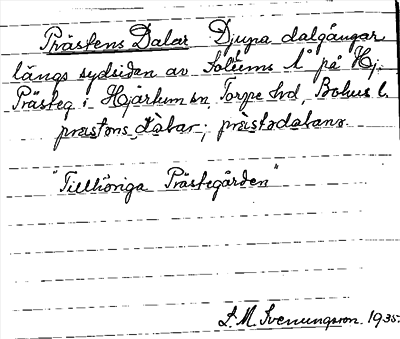 Prästens Dalar Djupa dalgångar
längs sydsidan av Soltems å på Hj.
Prästeg i Hjärtum sn Torpe hd, Bohus l.
prästens dàlar; prästədalanə.
"Tillhöriga Prästegården"
L.M. Svenungsson. 1935.